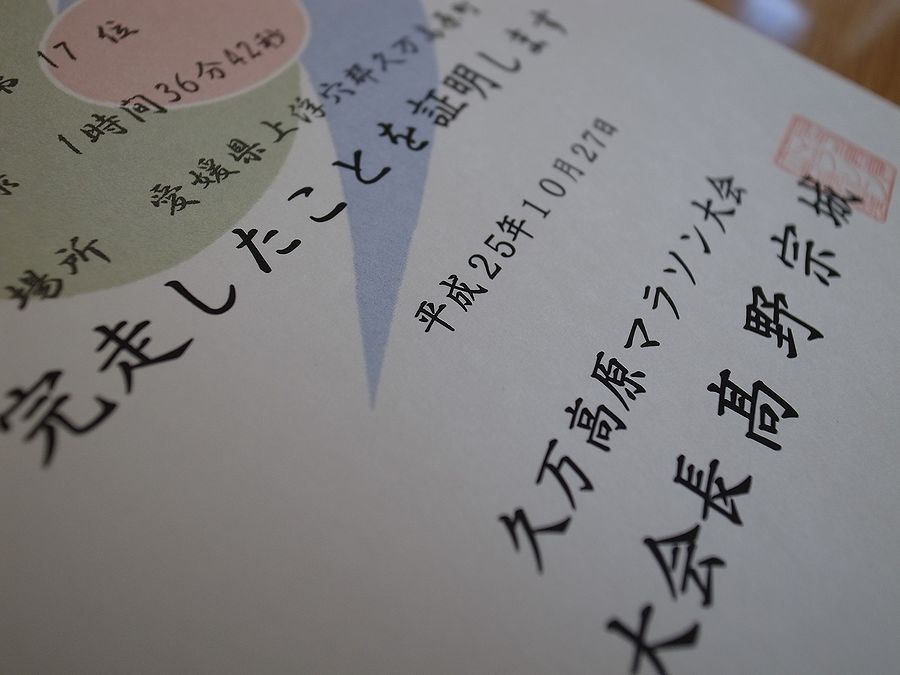 17 位
1時間36分42秒
場所 愛媛県上浮穴郡久万高原町
完走したことを証明します
平成25年10月27日
久万高原マラソン大会
大会長 髙野宗城